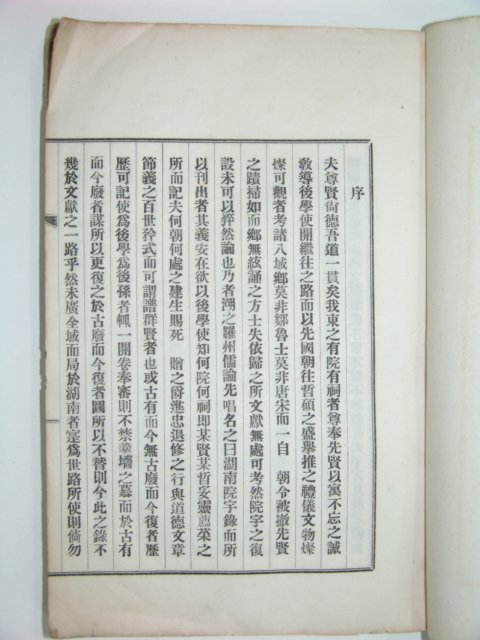 序
夫尊賢尙德吾道一貫矣我東之有院有祠者尊奉先賢以寓不忘之誠
敎導後學使開繼往之路而以先國朝往哲碩之盛擧推之禮儀文物燦
燦可觀者考諸八域鄕莫非鄒魯士莫非唐宋而一自　朝令被撤先賢
之蹟掃如而鄕無絃誦之方士失依歸之所文獻無處可考然院宇之復
設未可以猝然論也乃者湖之羅州儒論先唱名之曰湖南院宇錄而所
以刊出者其義安在欲以後學使知何院何祠卽某賢某哲妥靈薦菜之
所而記夫何朝何處之建生賜死　贈之爵進忠退修之行與道德文章
節義之百世矜式而可謂譜群賢者也或古有而今無古廢而今復者歷
歷可記使爲後學爲後孫者輒一開卷奉審則不禁羹墻之慕而於古有
而今廢者謀所以更復之於古廢而今復者圖所以不替則今此之錄不
幾於文獻之一路乎然未廣全域而局於湖南者寔爲世路所使則倘勿